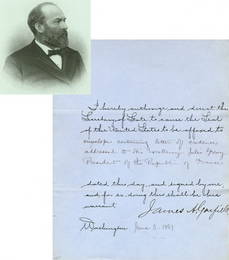 I hereby authorize and direct the
Secretary of State to cause the Seal
of the United States to be affixed to
envelope containing letter of credence
addressed to His Excellency Jules Grévy
President of the Republic of France
dated this day, and signed by me
and for so doing this shall be his
warrant
James A Garfield
Washington June 3, 1881